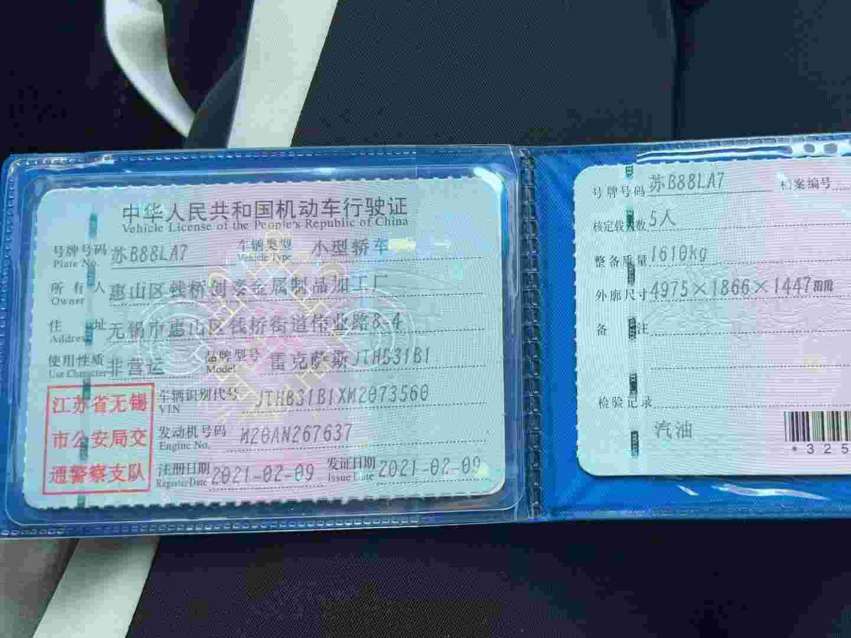 中华人民共和国机动车行驶证
Vehicle License of the People's Republic of China
号牌号码 苏B88LA7 车辆类型 小型轿车
Plate No. Vehicle Type
所有人 惠山区钱桥创泰金属制品加工厂
Owner
住址 无锡市惠山区钱桥街道伟业路8-4
Address
使用性质 非营运 品牌型号 雷克萨斯JTHB31B1
Use Character Model
江苏省无锡
市公安局交
通警察支队
车辆识别代号 JTHB31B1XM2073560
VIN
发动机号码 M20AN267637
Engine No.
注册日期 2021-02-09 发证日期 2021-02-09
Register Date Issue Date
号牌号码 苏B88LA7 档案编号
核定载人数 5人
整备质量 1610kg
外廓尺寸 4975×1866×1447mm
备注
检验记录
汽油
*325